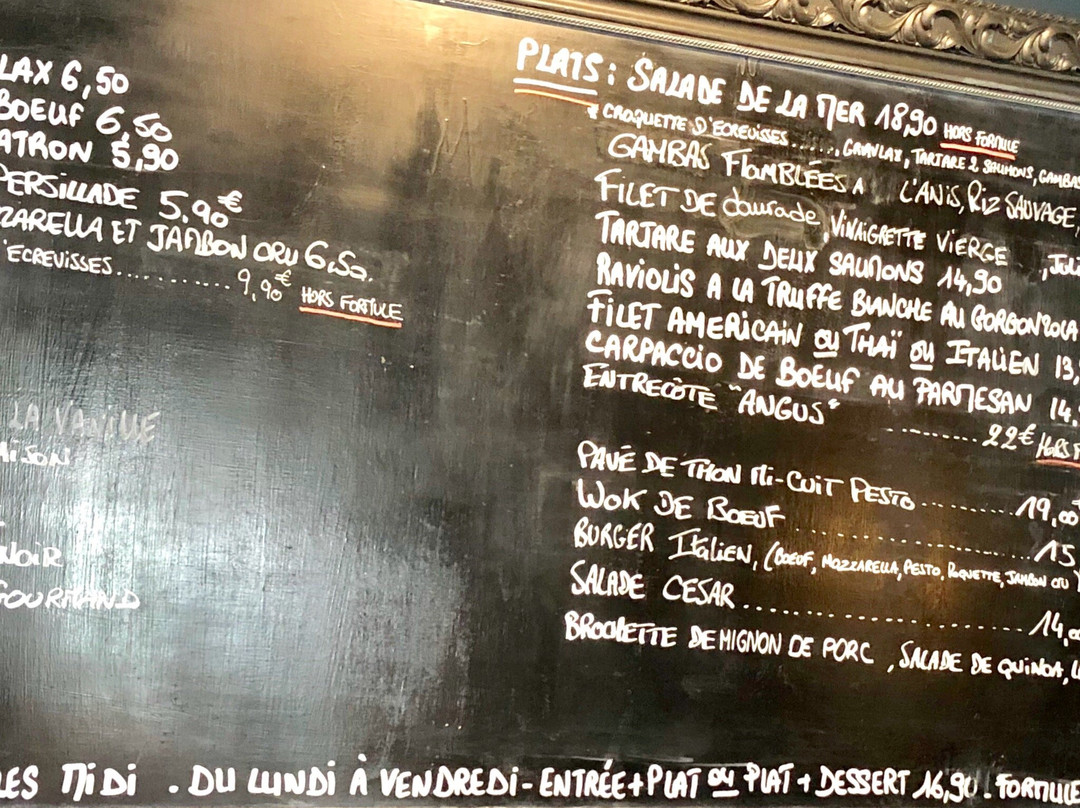 LAX 6,50
BOEUF 6,50
ATRON 5,90
PERSILLADE 5.90€
ZARELLA ET JAMBON CRU 6,50.
ECREVISSES............ 9,90€ HORS FORMULE
LA VANILLE
AISON
NOIR
GOURMAND
PLATS: SALADE DE LA MER 18,90 HORS FORMULE
* CROQUETTE D'ECREVISSES......, GRAVLAX, TARTARE 2 SAUMONS, GAMBAS
GAMBAS FLAMBLÉES A L'ANIS, RIZ SAUVAGE,
FILET DE daurade, VINAIGRETTE VIERGE
TARTARE AUX DEUX SAUMONS 14,90
RAVIOLIS A LA TRUFFE BLANCHE AU GORGONZOLA
FILET AMERICAIN OU THAÏ OU ITALIEN 13,
CARPACCIO DE BOEUF AU PARMESAN 14,
ENTRECÔTE "ANGUS"
.......... 22€ HORS F
PAVÉ DE THON MI-CUIT PESTO .......... 19,00
WOK DE BOEUF .......... 15,
BURGER Italien, (BOEUF, MOZZARELLA, PESTO, ROQUETTE, JAMBON
SALADE CESAR .......... 14,00
BROCHETTE DE MIGNON DE PORC , SALADE DE QUINOA,
LES MIDI . DU LUNDI À VENDREDI - ENTRÉE + PLAT OU PLAT + DESSERT 16,90 . FORMULE